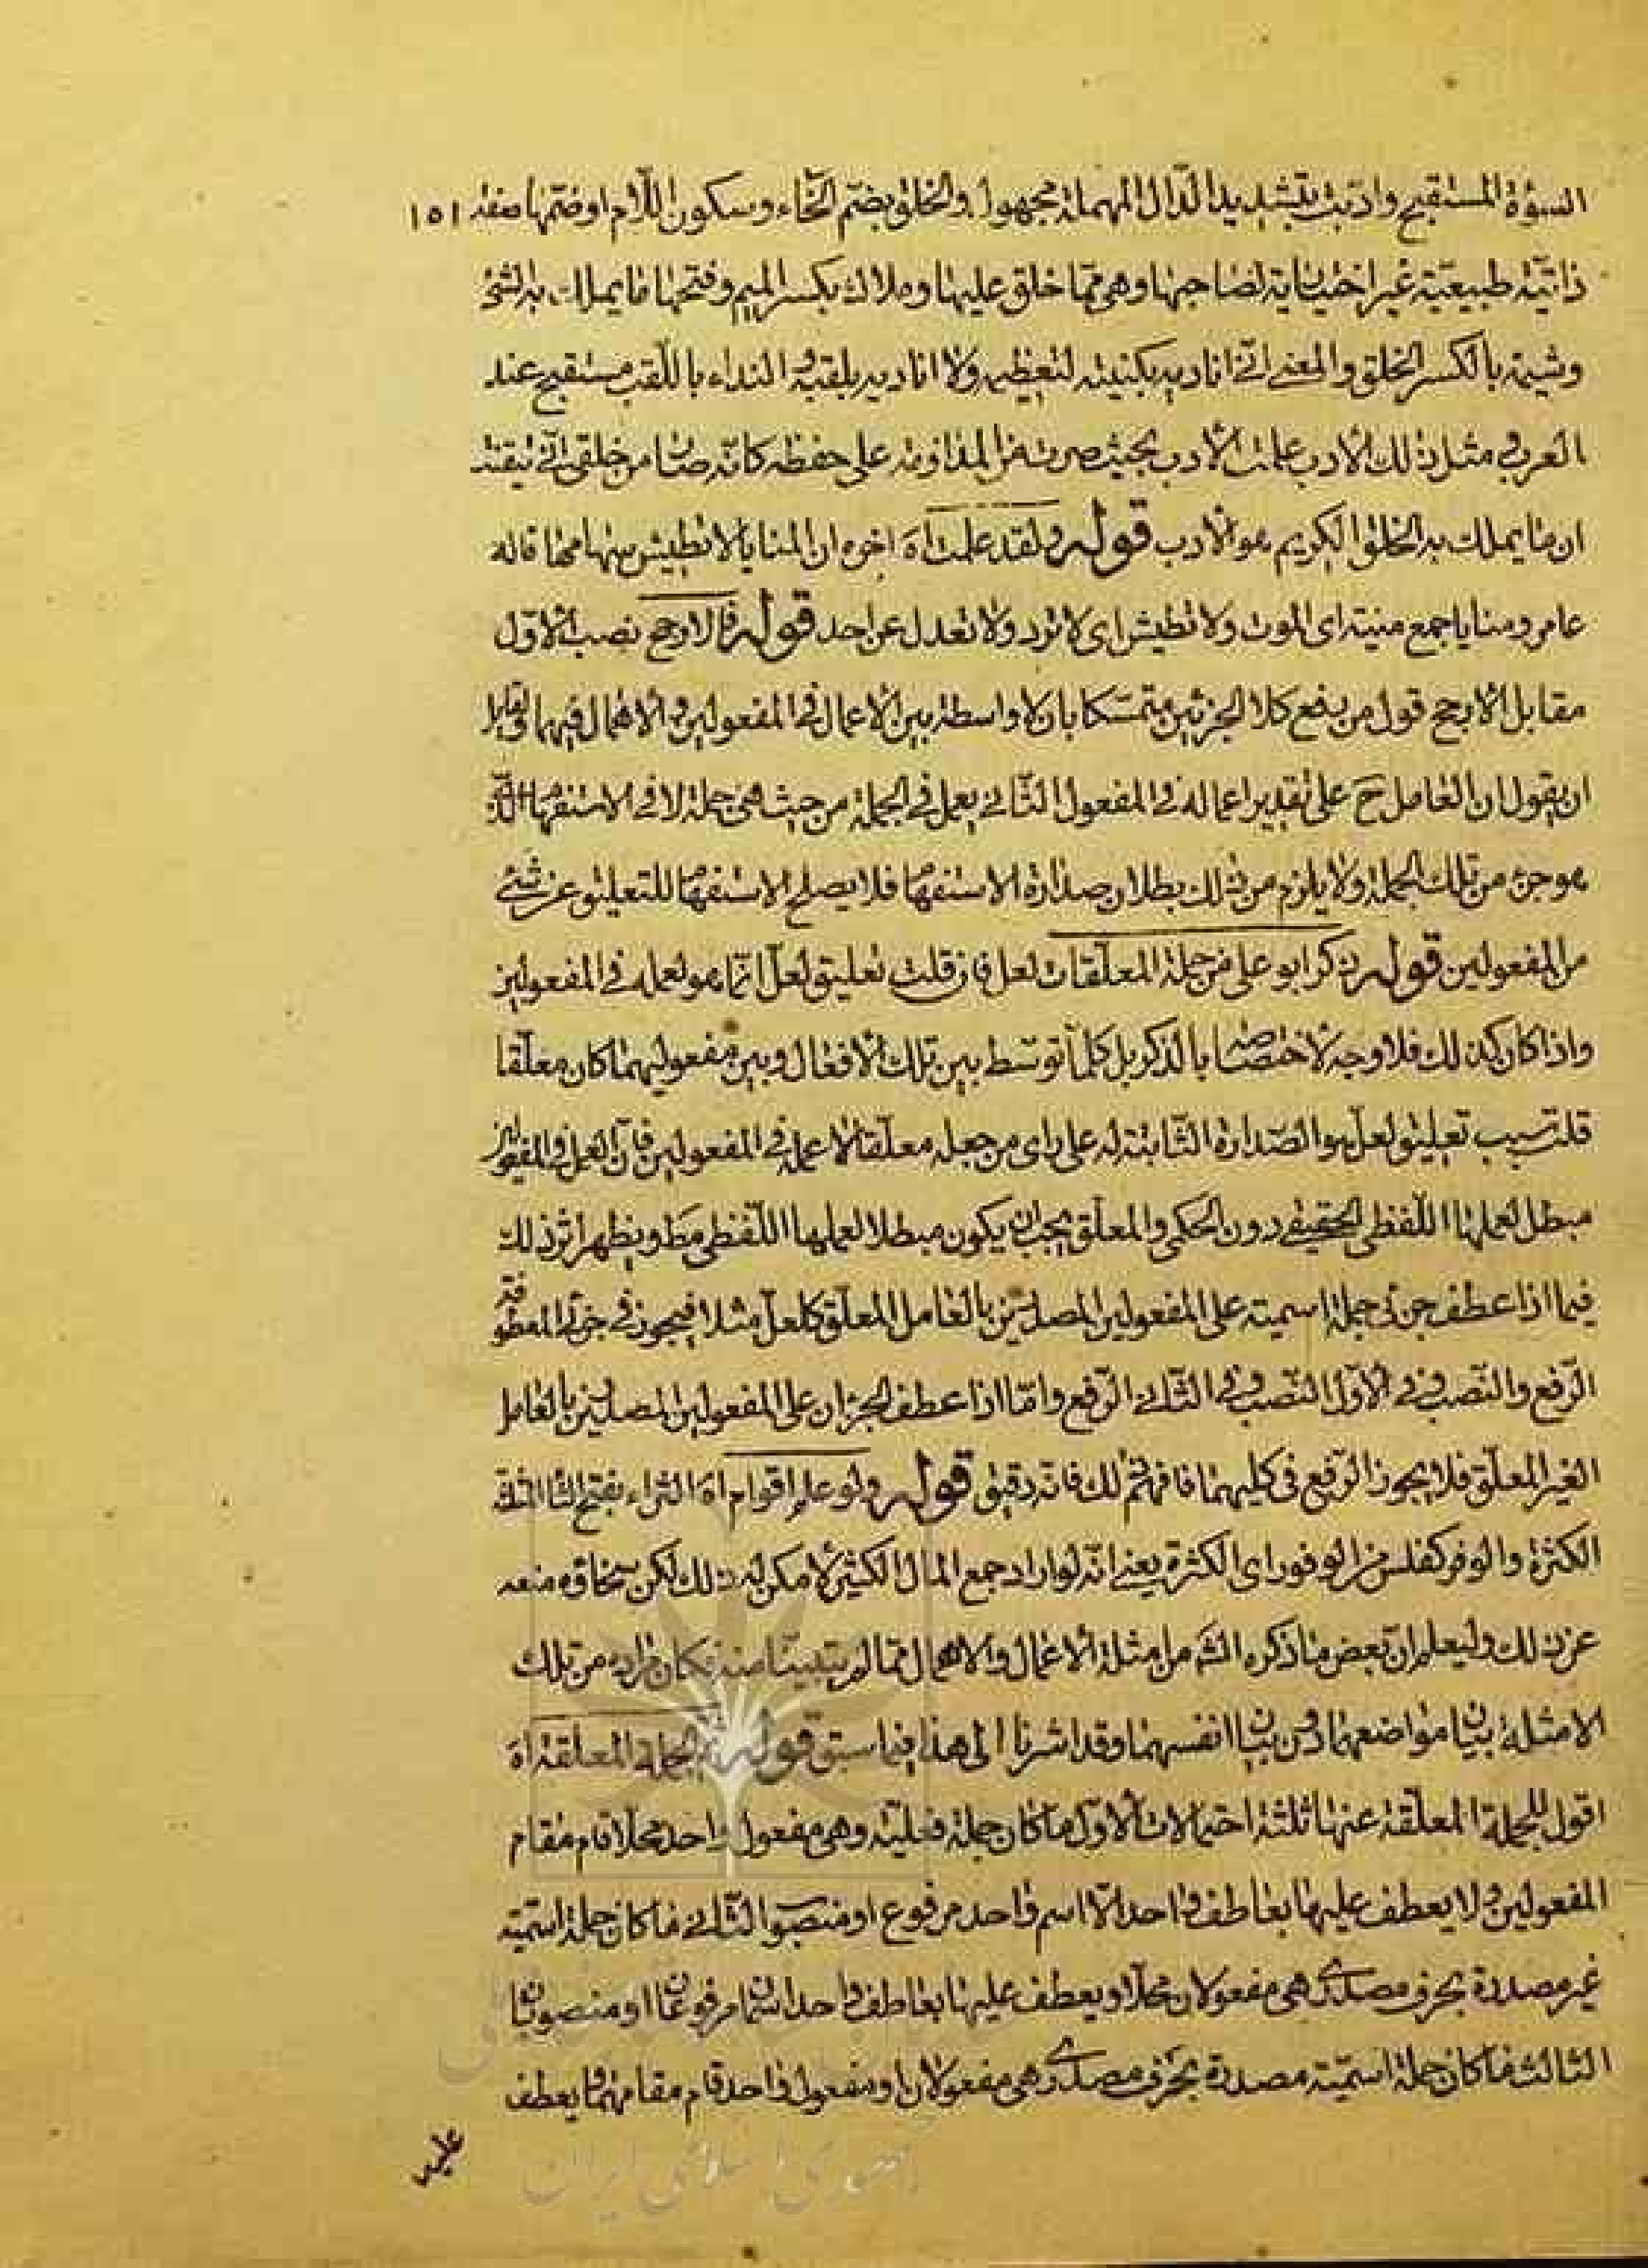 السؤة المستقبح وادبت بتشديد الدال المهملة مجهول والخلق بضم الخاء وسكون اللام او ضمها صفة ١٥١
ذاتية طبيعية غير اختيارية لصاحبها وهي مما خلق عليها وملاك بكسر الميم وفتحها ما يملك به الشئ
وشيمة بالكسر الخلق والمعنى اني اناديه بكنيته لتعظيمه ولا اناديه بلقبه و النداء باللقب مستقبح عند
العرب في مثل ذلك الأدب علمت الأدب بحيث صرت من المداومة على حفظه كانه صار من خلقي اني تيقنت
ان ما يملك به الخلق الكريم هو الأدب قوله ولقد علمت اه اخره ان المنايا لا تطيش سهامها قاله
عامر ومنايا جمع منية اى الموت ولا تطيش اى لا ترد ولا تعدل عن احد قوله فالارجح نصب الأول
مقابل الأرجح قول من يدفع كلا الجزئين متمسكا بان لا واسطة بين الأعمال في المفعولين والاهمال فيهما ولقائل
ان يقول ان العامل ح على تقدير اعماله في المفعول الثاني يعمل في الجملة من حيث هي جملة لا في الاستفهام الذى
هو جزء من تلك الجملة ولا يلزم من ذلك بطلان صدارة الاستفهام فلا يصلح الاستفهام للتعليق عن شئ
من المفعولين قوله ذكر ابو على من جملة المعلقات لعل فان قلت تعليق لعل انما هو لعمله في المفعولين
واذا كان كذلك فلا وجه لاختصاصها بالذكر بل كلما توسط بين تلك الأفعال وبين مفعوليهما كان معلقا
قلت سبب تعليق لعل هو الصدارة الثابتة له على راى من جعله معلقا لا عمله في المفعولين فان العمل في المفعولين
مبطل لعملها اللفظى الحقيقي دون الحكمى والمعلق يجب ان يكون مبطلا لعملها اللفظى مط ويظهر اثر ذلك
فيما اذا عطف جزئى جملة اسمية على المفعولين المصدرين بالعامل المعلق كلعل مثلا فيجوز في جزئى المعطوفة
الرفع والنصب في الأول النصب وفي الثاني الرفع واما اذا عطف الجزءان على المفعولين المصدرين بالعامل
الغير المعلق فلا يجوز الرفع في كليهما فافهم ذلك فانه دقيق قوله ولو علم اقوام اه الثراء بفتح الثاء المثلثة
الكثرة والوفر كفلس من الوفور اى الكثرة يعنى انه لو اراد جمع المال الكثير لأمكن له ذلك لكن سخاؤه منعه
عن ذلك وليعلم ان بعض ما ذكره الش من امثلة الأعمال والاهمال مما لم يتبينا منه فكان مراده من تلك
الامثلة بيان مواضعهما دون بيان انفسهما وقد اشرنا الى هذا فيما سبق قوله الجملة المعلقة اه
اقول للجملة المعلقة عنها ثلثة احتمالات الأول ما كان جملة فعلية وهي مفعول واحد محلا قام مقام
المفعولين ولا يعطف عليها بعاطف واحد الا اسم واحد مرفوع او منصوب الثاني ما كان جملة اسمية
غير مصدرة بحرف مصدرى هي مفعولان محلا ويعطف عليها بعاطف واحد اسمان مرفوعان او منصوبان
الثالث ما كان جملة اسمية مصدرة بحرف مصدرى هي مفعولان او مفعول واحد قام مقامهما ويعطف
عليه
جمهوری اسلامی ایران